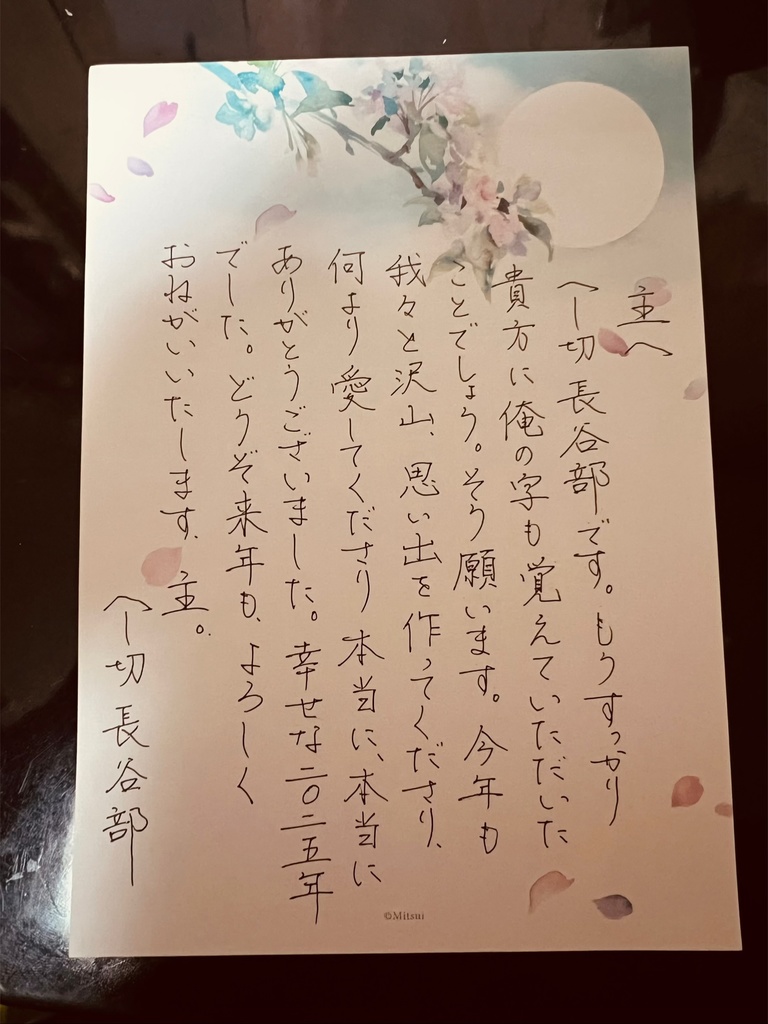 主へ
へし切長谷部です。もうすっかり
貴方に俺の字も覚えていただいた
ことでしょう。そう願います。今年も
我々と沢山、思い出を作ってくださり、
何より愛してくださり本当に、本当に
ありがとうございました。幸せな二〇二五年
でした。どうぞ来年も、よろしく
おねがいいたします、主。
へし切長谷部
©Mitsui